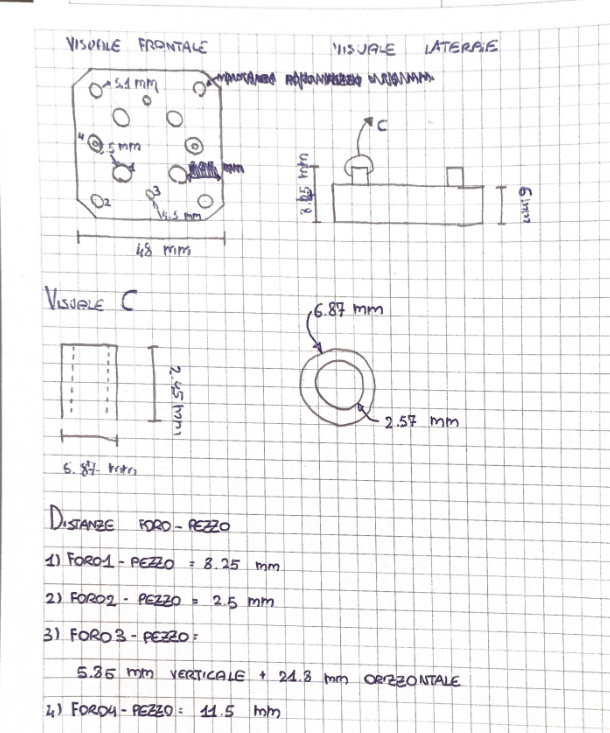 VISUALE FRONTALE
VISUALE LATERALE
5.1 mm
C
4
5 mm
1
2
3
5.5 mm
48 mm
6 mm
VISUALE C
6.87 mm
2.45 mm
2.57 mm
6.87 mm
DISTANZE FORO-PEZZO
1) FORO1 - PEZZO = 8.25 mm
2) FORO2 - PEZZO = 2.5 mm
3) FORO3 - PEZZO:
5.85 mm VERTICALE + 21.8 mm ORIZZONTALE
4) FORO4 - PEZZO: 11.5 mm